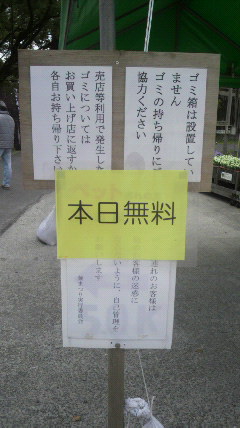 ゴミ箱は設置してい
ません
ゴミの持ち帰りにご
協力ください
売店等利用で発生した
ゴミについては
お買い上げ店に返すか
各自お持ち帰り下さい
本日無料
連れのお客様は
客様の迷惑に
いように、自己管理を
します